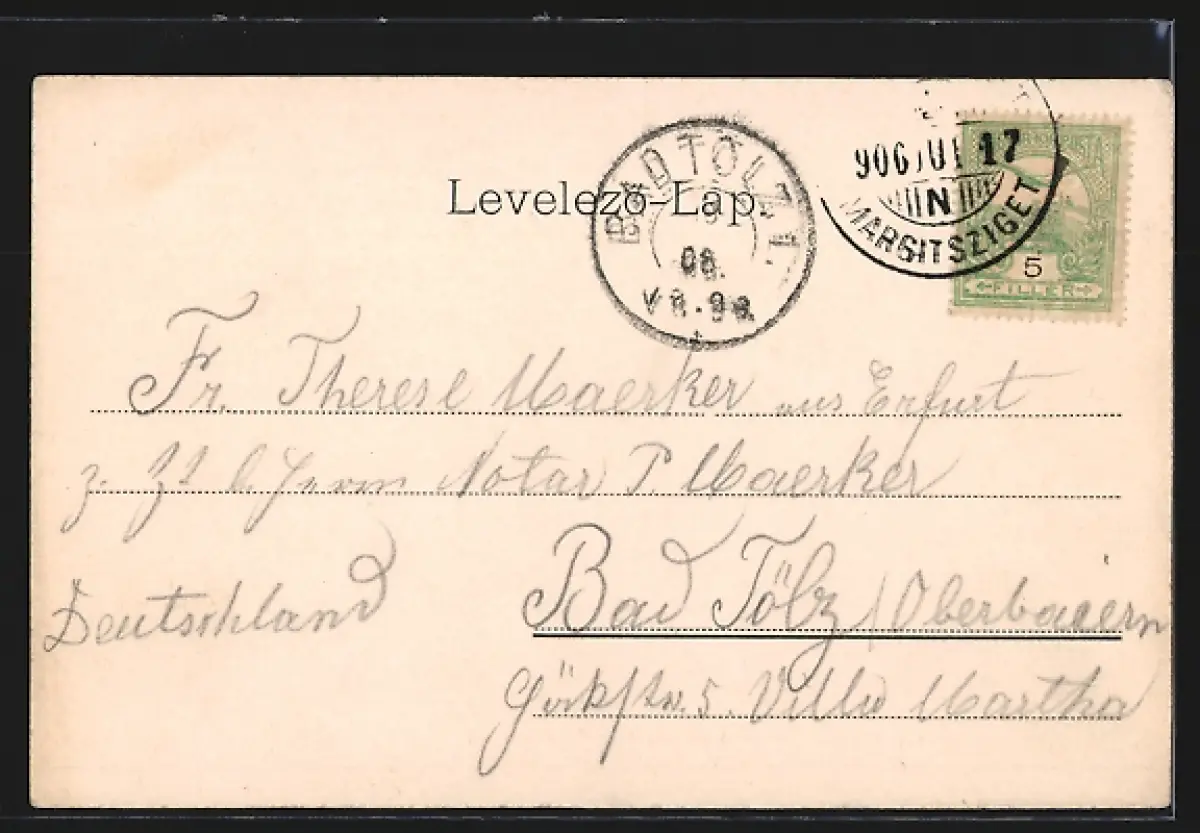 Levelező-Lap.
BAD TÖLZ 1.
06.
V 8-9
906 JUL 17
N
MARGITSZIGET
5
FILLER
Fr. Therese Maerker aus Erfurt
z. Zt b. Herrn Notar P Maerker
Deutschland
Bad Tölz / Oberbaiern
5. Villa Martha